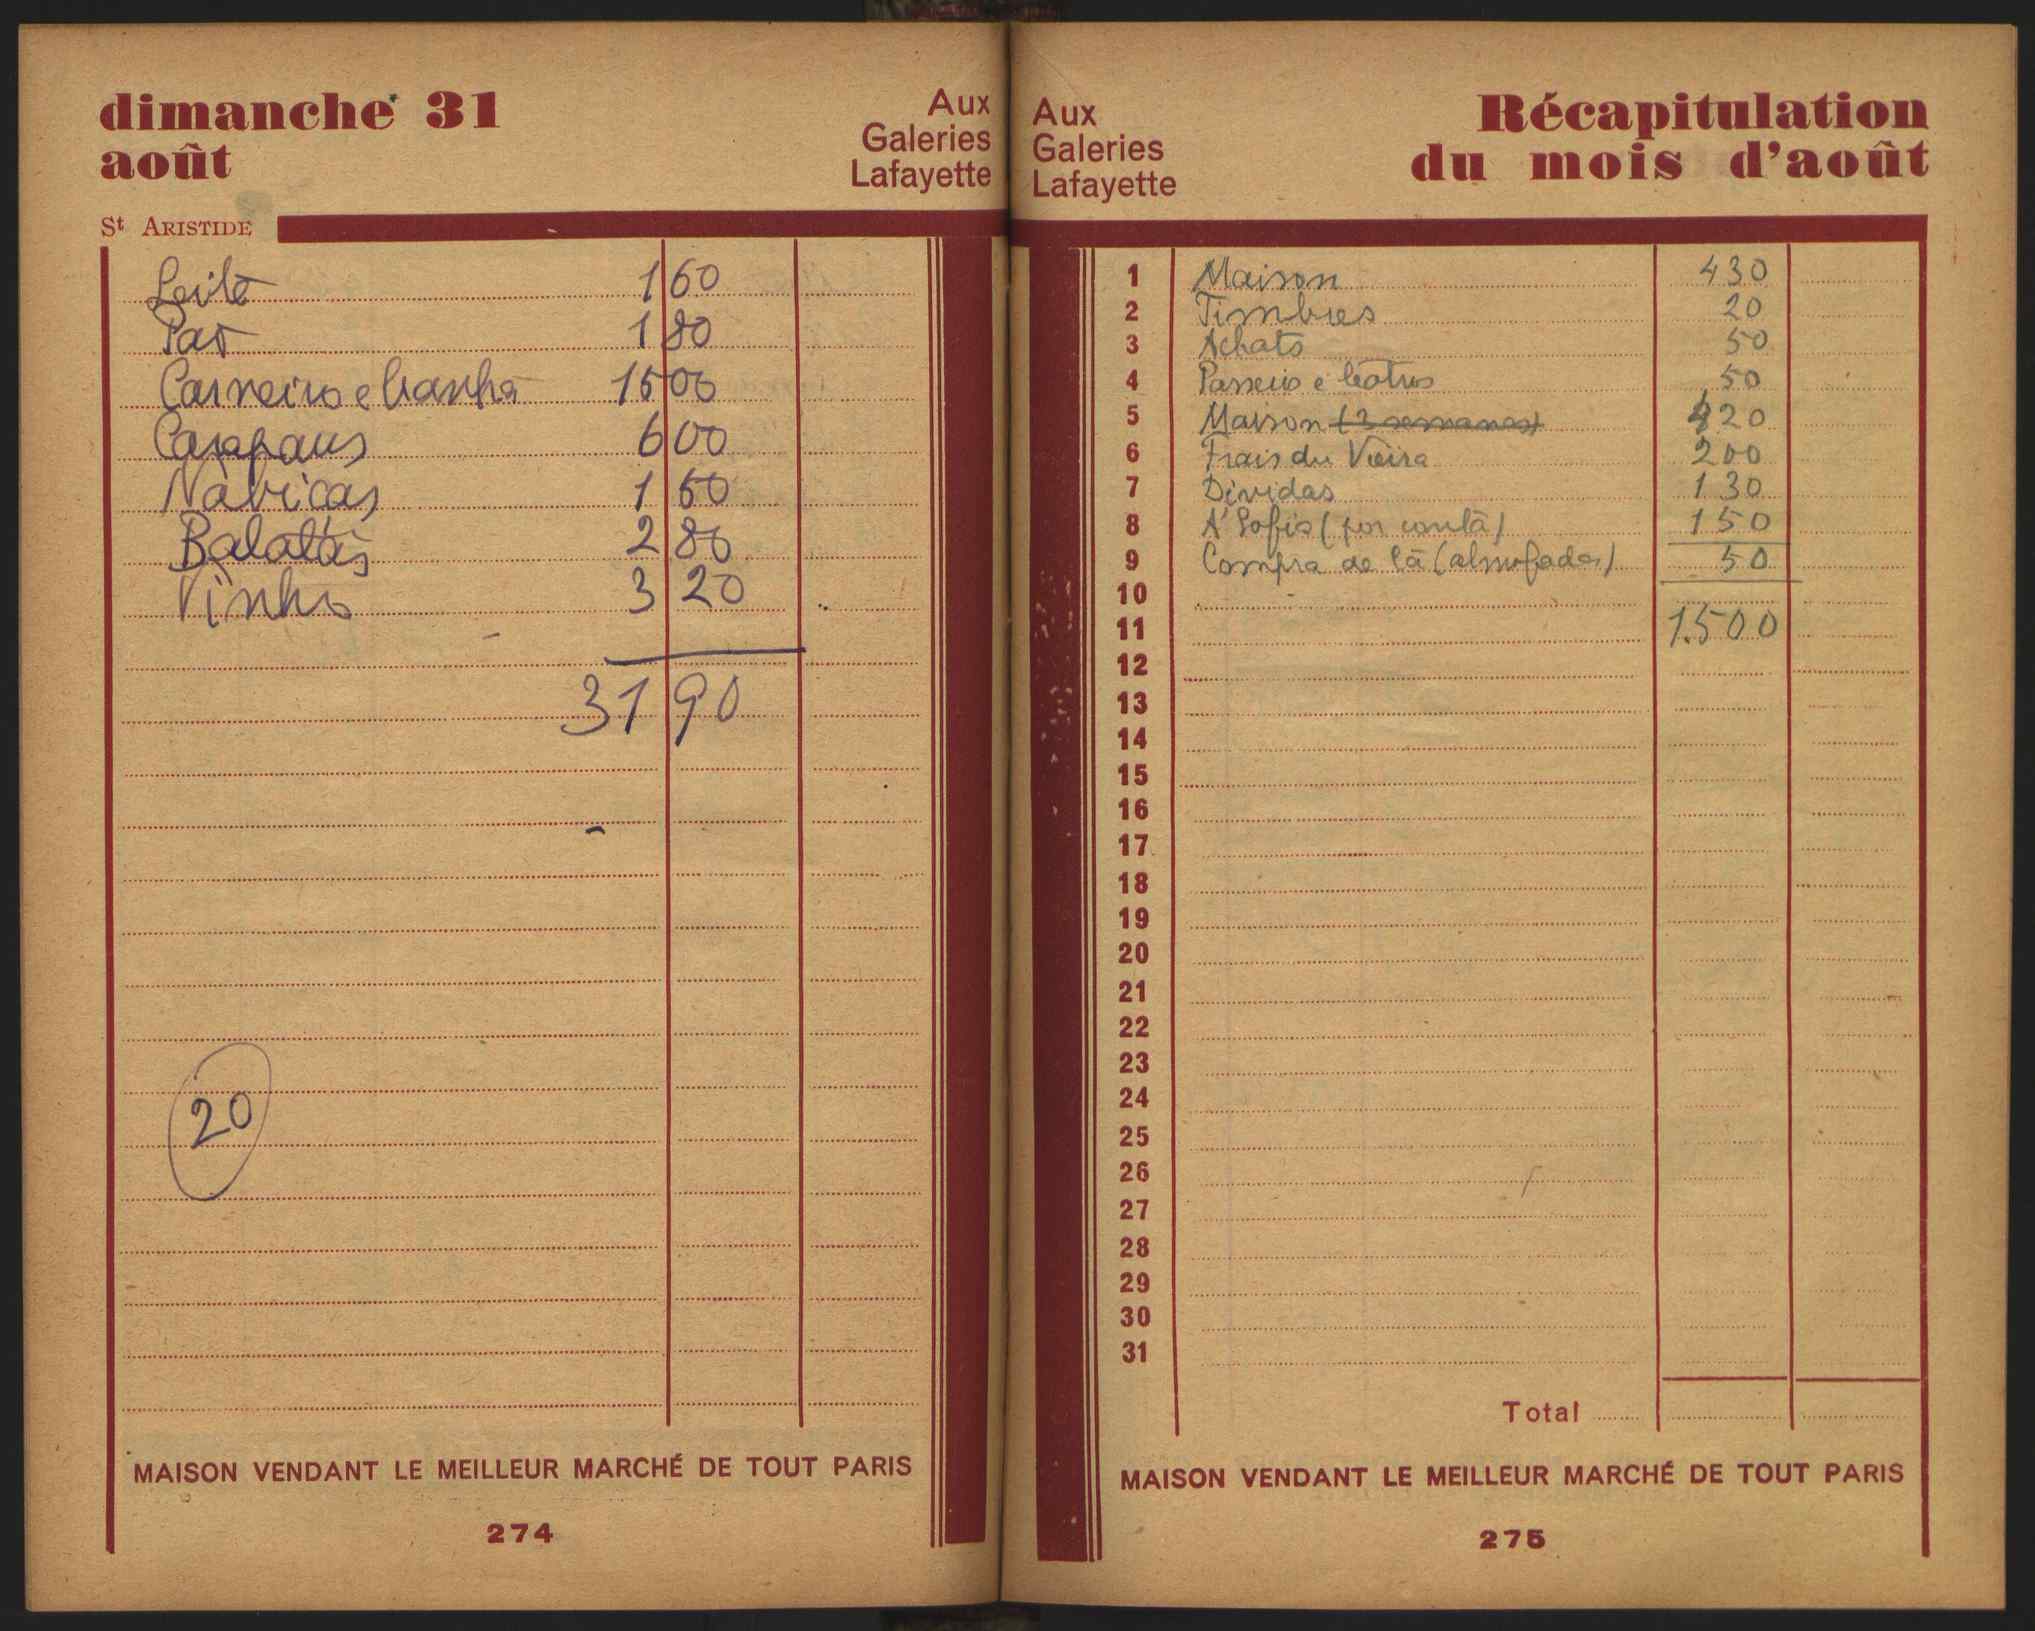 dimanche 31
août
Aux
Galeries
Lafayette
St ARISTIDE
Leite 1 60
Pão 1 80
Carneiro e banha 15 00
Carapaus 6 00
Nabiças 1 50
Batatas 2 80
Vinho 3 20
31 90
20
MAISON VENDANT LE MEILLEUR MARCHÉ DE TOUT PARIS
274
Aux
Galeries
Lafayette
Récapitulation
du mois d'août
1 Maison 430
2 Timbres 20
3 Achats 50
4 Passeio e teatros 50
5 Maison (3 semanas) 420
6 Frais du Vieira 200
7 Dívidas 130
8 A' Sofia (por conta) 150
9 Compra de lã (almofadas) 50
10
11 1.500
12
13
14
15
16
17
18
19
20
21
22
23
24
25
26
27
28
29
30
31
Total
MAISON VENDANT LE MEILLEUR MARCHÉ DE TOUT PARIS
275